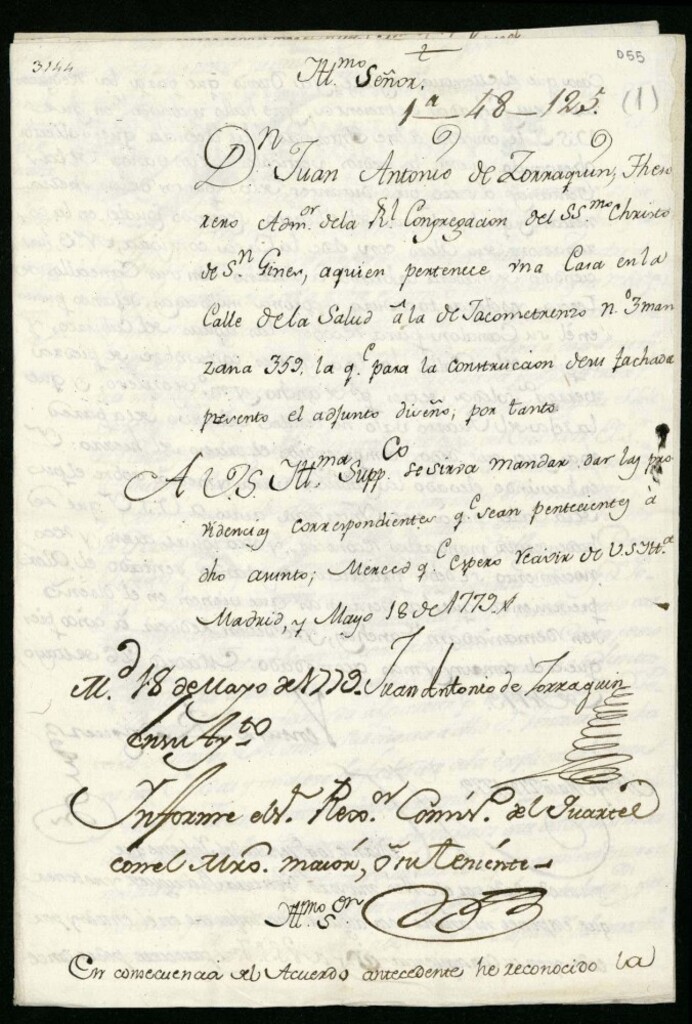 3144
055
Yll.mo Señor.
1ª-48-125.
(1)
D.n Juan Antonio de Zorraquin, Theso
rero Adm.or dela R.l Congregacion del SS.mo Christo
de S.n Gines, aquien pertenece vna Casa en la
Calle dela Salud â la de Jacometrenzo n.o 3 man
zana 359. la q.e para la construccion desu fachada
presento el adjunto diseño; por tanto.
A V.S. Yll.ma Supp.co se sirva mandar dar las pro
videncias correspondientes q.e sean pentecientes â
dho asunto; Merced q.e espero recivir de V.S. Yll.ma
Madrid, y Mayo 18 de 1779.
Juan Antonio de Zorraquin
M.d 18 de Mayo de 1779.
En su Ay.to
Ynforme el S.r Rexo.or Comis.o del Quartel
con el Mro. maior, ô su teniente
Yll.mo S.or
En consecuencia del Acuerdo antecedente he reconocido la